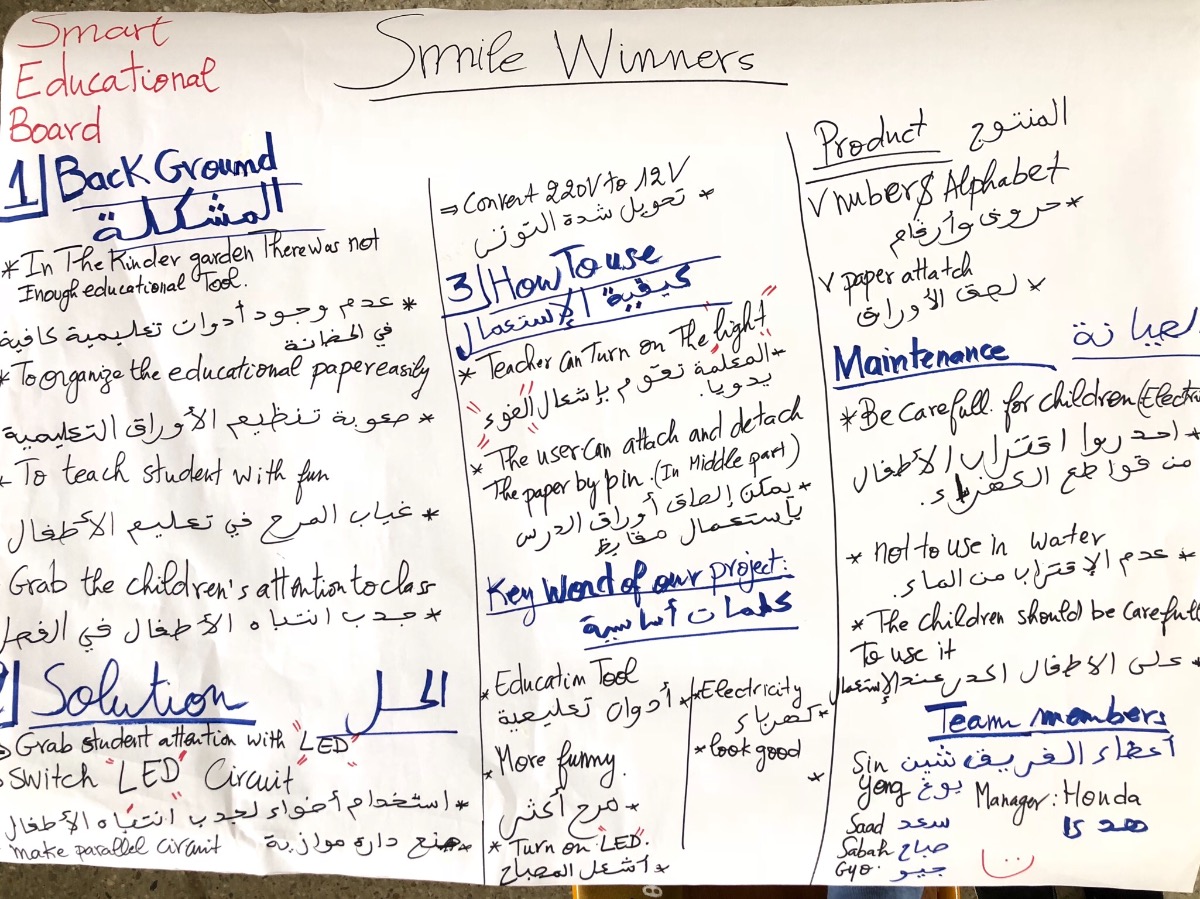 Smart
Educational
Board
Smile Winners
1 Back Ground
المشكلة
* In The Kinder garden There was not
Inough educational Tool.
* عدم وجود أدوات تعليمية كافية
في الحضانة
* To organize the educational paper easily
* صعوبة تنظيم الأوراق التعليمية
- To teach student with fun
* غياب المرح في تعليم الأطفال
Grab the children's attention to class
* جدب انتباه الأطفال في الفصل
Solution الحل
Grab student attention with "LED"
Switch "LED" Circuit
* استخدام أضواء لجدب انتباه الأطفال
make parallel circuit صنع دارة موازية
⇒ Convert 220V to 12V
* تحويل شدة التوتر
3 How To use
كيفية الإستعمال
* Teacher can Turn on The "light"
* المعلمة تقوم بإشعال "الضوء"
يدويا.
* The user can attach and detach
The paper by pin. (In Middle part)
* يمكن إلصاق أوراق الدرس
بإستعمال مقابط
Key Word of our project:
كلمات أساسية
* Education Tool
* أدوات تعليمية
* More funny.
* مرح أكثر
* Turn on "LED".
* أشعل المصباح
* Electricity
* كهرباء
* look good
*
Product المنتوج
√ nubers Alphabet
* حروف وأرقام
√ paper attatch
* لصق الأوراق
Maintenance الصيانة
* Be carefull. for children (Electri
* احدروا اقتراب الأطفال
من قواطع الكهرباء.
* not to use in water
* عدم الإقتراب من الماء.
* The children should be carefull
To use it
* على الأطفال الحدر عند الإستعمال
Team members
أعضاء الفريق
Sin شين
Yong يوغ
Manager: Honda
هدى
Saad سعد
Sabah صباح
Gyo. جيو